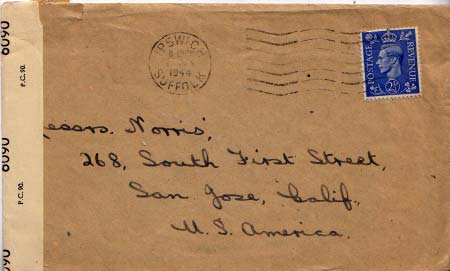 6090
P.C. 90.
6090
P.C. 90.
6090
IPSWICH
1944
SUFFOLK
POSTAGE
REVENUE
2½
essrs. Norris',
268, South First Street,
San Jose, Calif.,
U.S. America.